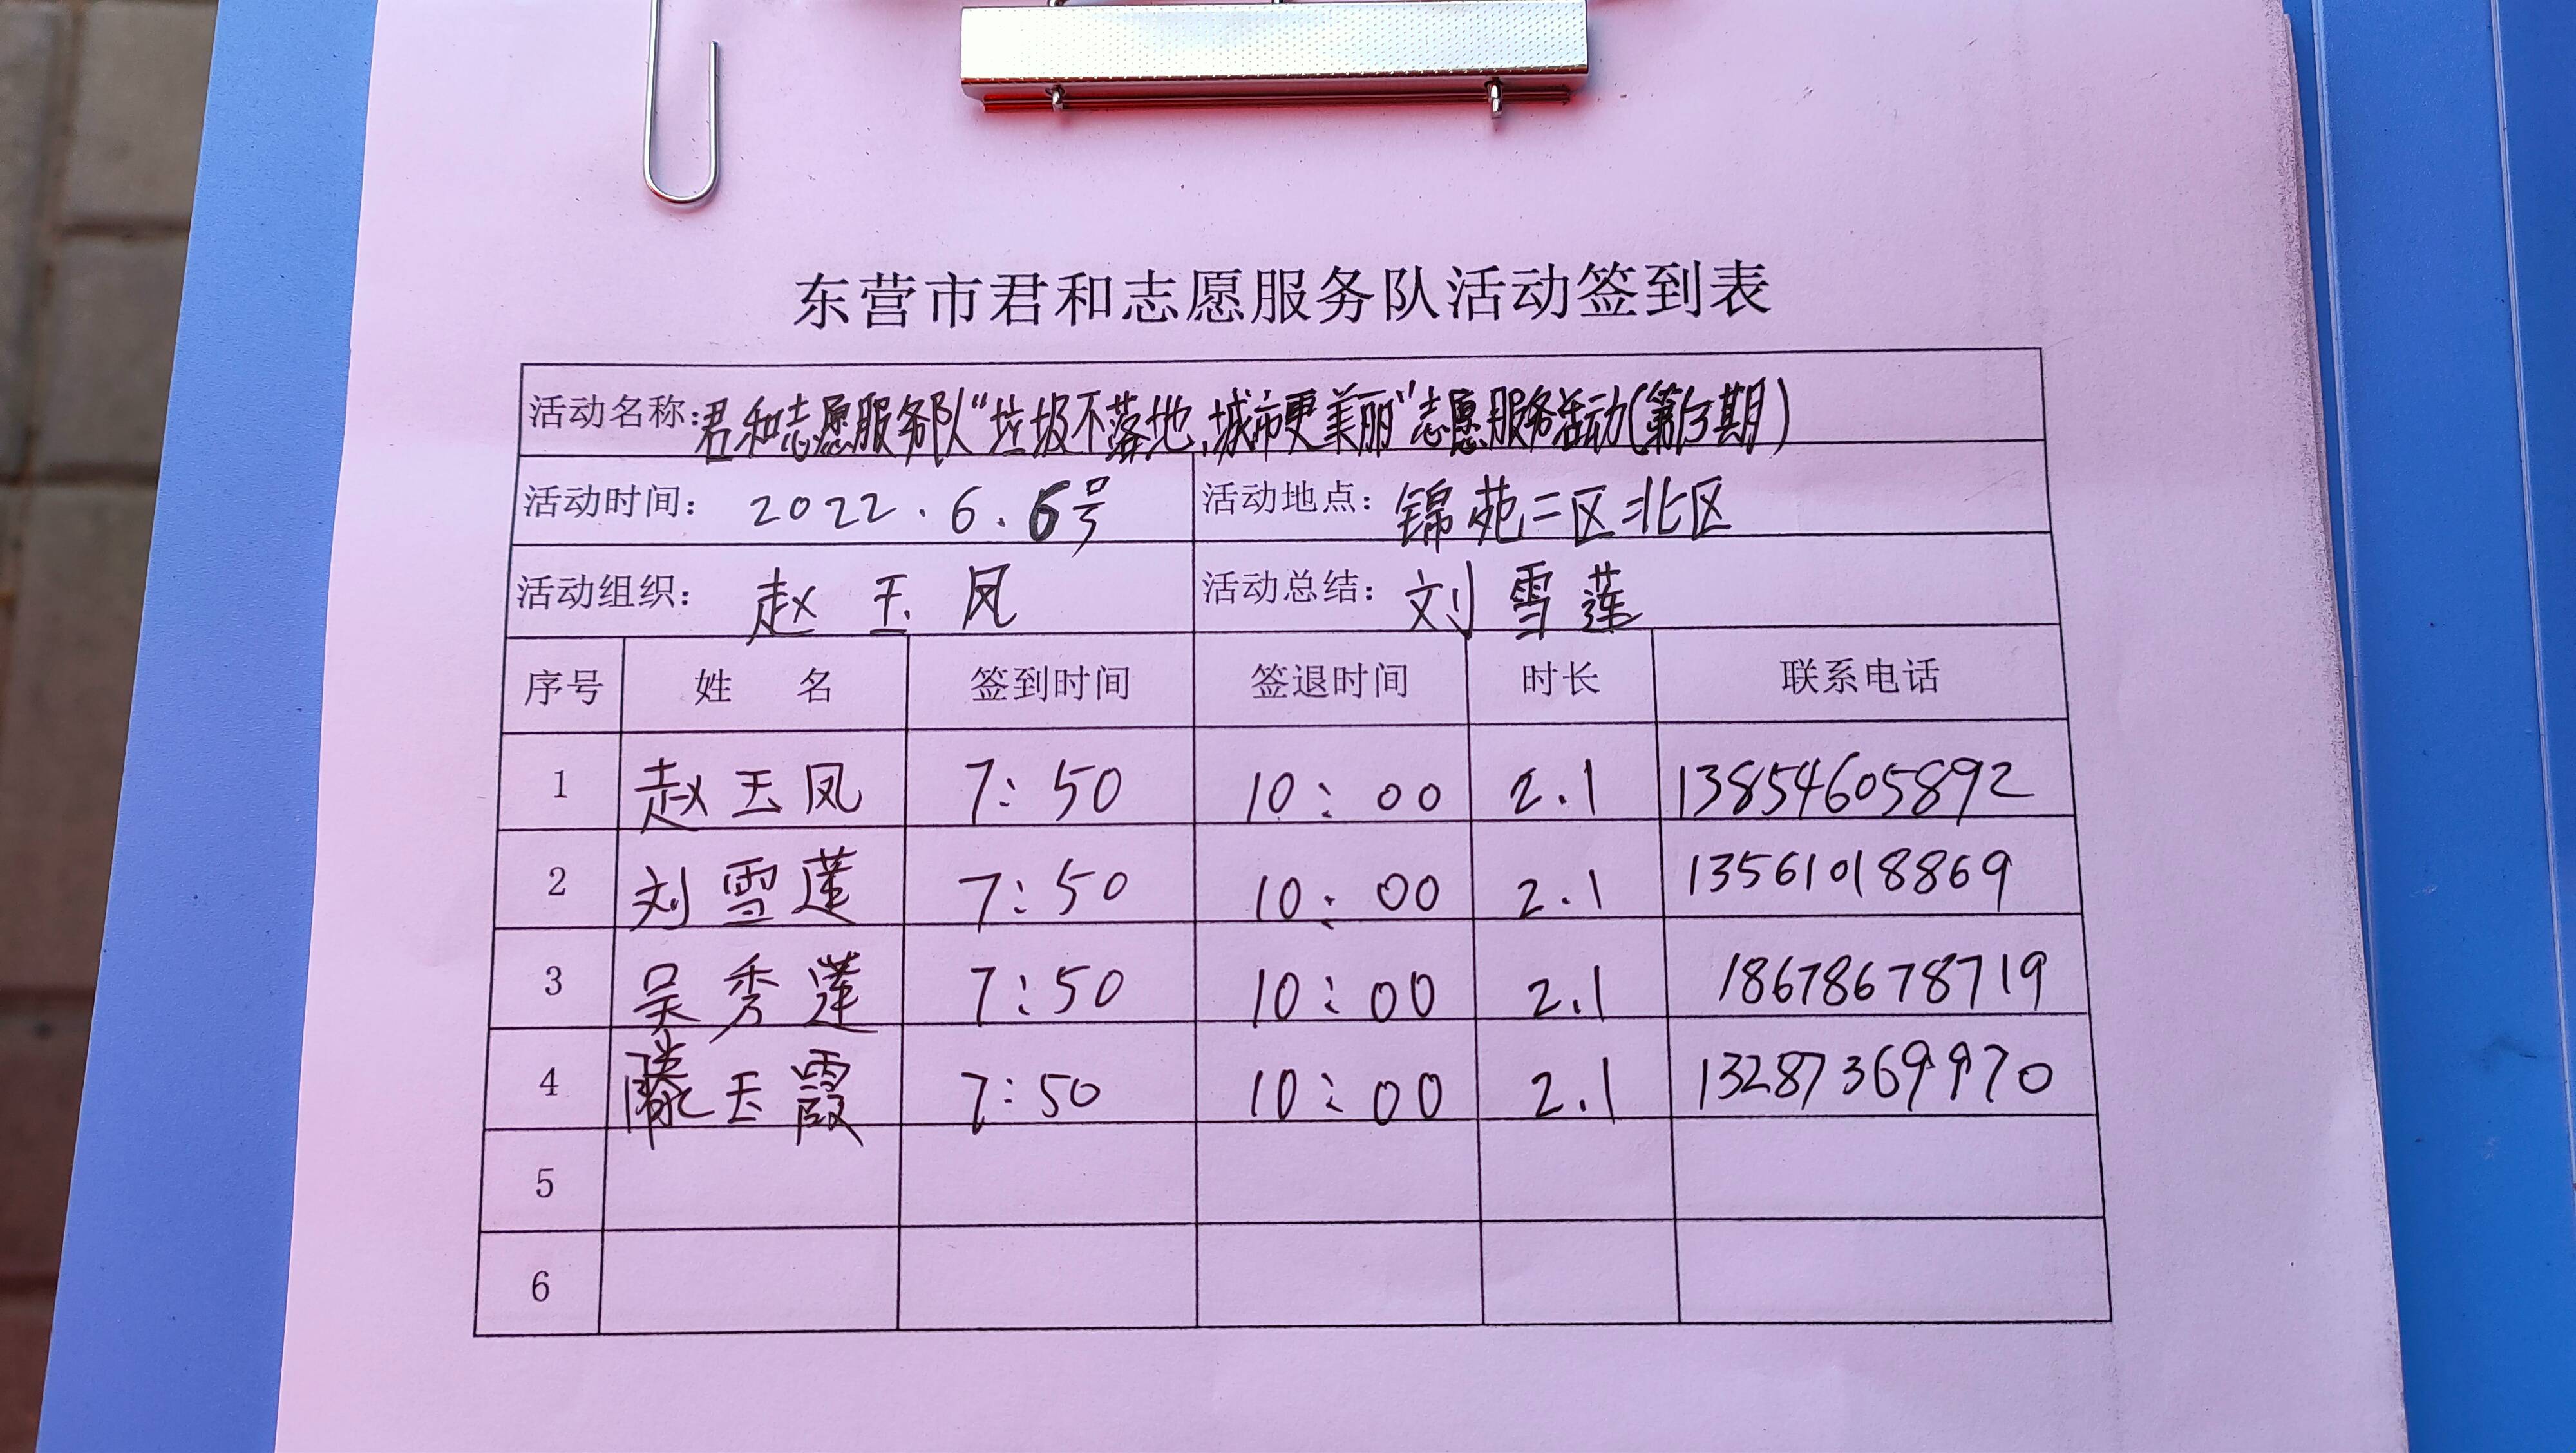 东营市君和志愿服务队活动签到表
活动名称:君和志愿服务队“垃圾不落地,城市更美丽”志愿服务活动(第13期)
活动时间: 2022.6.6号 活动地点: 锦苑二区北区
活动组织: 赵玉凤 活动总结: 刘雪莲
序号 姓 名 签到时间 签退时间 时长 联系电话
1 赵玉凤 7:50 10:00 2.1 13854605892
2 刘雪莲 7:50 10:00 2.1 13561018869
3 吴秀莲 7:50 10:00 2.1 18678678719
4 滕玉霞 7:50 10:00 2.1 13287369970
5
6